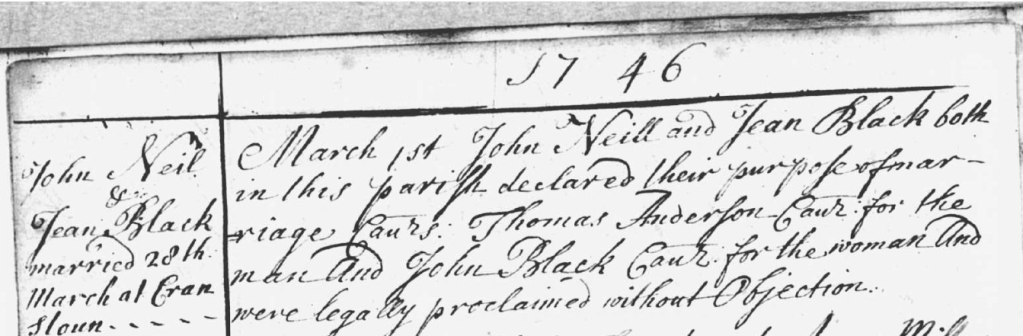 1746
John Neil
&
Jean Black
married 28th
March at Cran
stoun - - - - -
March 1st John Neill and Jean Black both
in this parish declared their purpose of mar-
riage Caurs: Thomas Anderson Caur: for the
man And John Black Caur: for the woman And
were legally proclaimed without Objection.